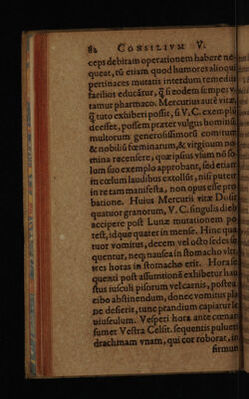 82 CONSILIVM V.
ceps debitam operationem habere ne-
queat, tū etiam quod humores aliqui
pertinaces mutatis interdum remedijs
facilius educātur, q̄ si eodem semper v-
tamur pharmaco. Mercurius autē vitæ,
q̄ tuto exhiberi possit, si V. C. exempla
deessent, possem præter vulgus hominū
multorum generosissimorū comitum
& nobiliū fœminarum, & virginum no-
mina recensere, quæ ipsius vium nō so-
lum suo exemplo approbant, sed etiam
in cœlum laudibus extollūt, nisi putem
in re tam manifesta, non opus esse pro-
batione. Huius Mercurij vitæ Dosis
quatuor granorum, V. C. singulis dieb
accipere post Lunæ mutationem po-
test, idque quater in mense. Hinc qua-
tuor vomitus, decem vel octo sedes se-
quentur, neq; nausea in stomacho vltra
tres horas in stomacho erit. Hora se-
quenti post assumtionē exhibetur hau-
stus iusculi pisorum vel carnis, postea
cibo abstinendum, donec vomitus pla-
ne desierit, tunc prandium capiatur le-
uiusculum. Vesperi hora ante cœnam
sumet Vestra Celsit. sequentis pulueris
drachmam vnam, qui cor roborat, in
firmum